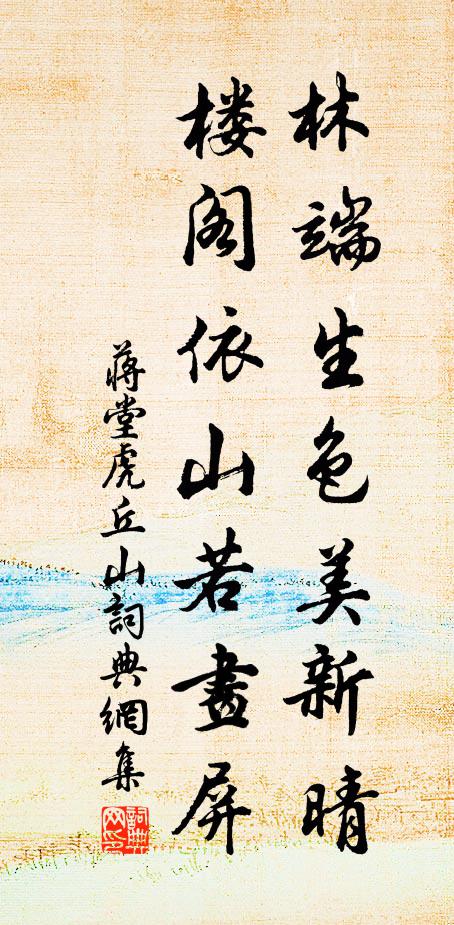 林端生色美新晴
楼阁依山若畫屏
蔣堂虎丘山詞典網集
詞典网印